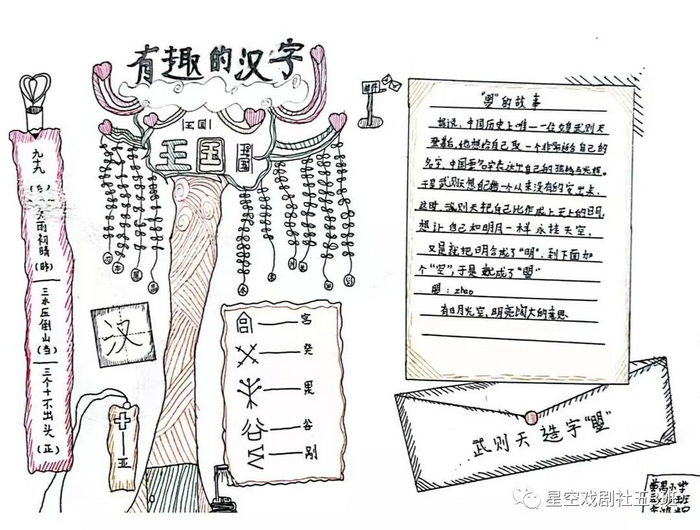 有趣的汉字
王国
王国
王国
邮件
九九
大雨初晴
三水压倒山(当)
三个十不出头(正)
汉
亚
宫
癸
果
谷
别
"曌"的故事
据说，中国历史上唯一一位女皇武则天
登基后，他想给自己取一个非常适合自己的
名字，
于是武则天想自己造一个从来没有的字出来
这时，武则天把自己比作成上天上的日月
想让自己和明月一样永挂天空，
又是就把日月合成了"明"，到下面加
个"空"，于是就成了"曌"
曌：zhao
有日月光空，明亮阔大的意思
武则天造字"曌"
星空戏剧社五3班